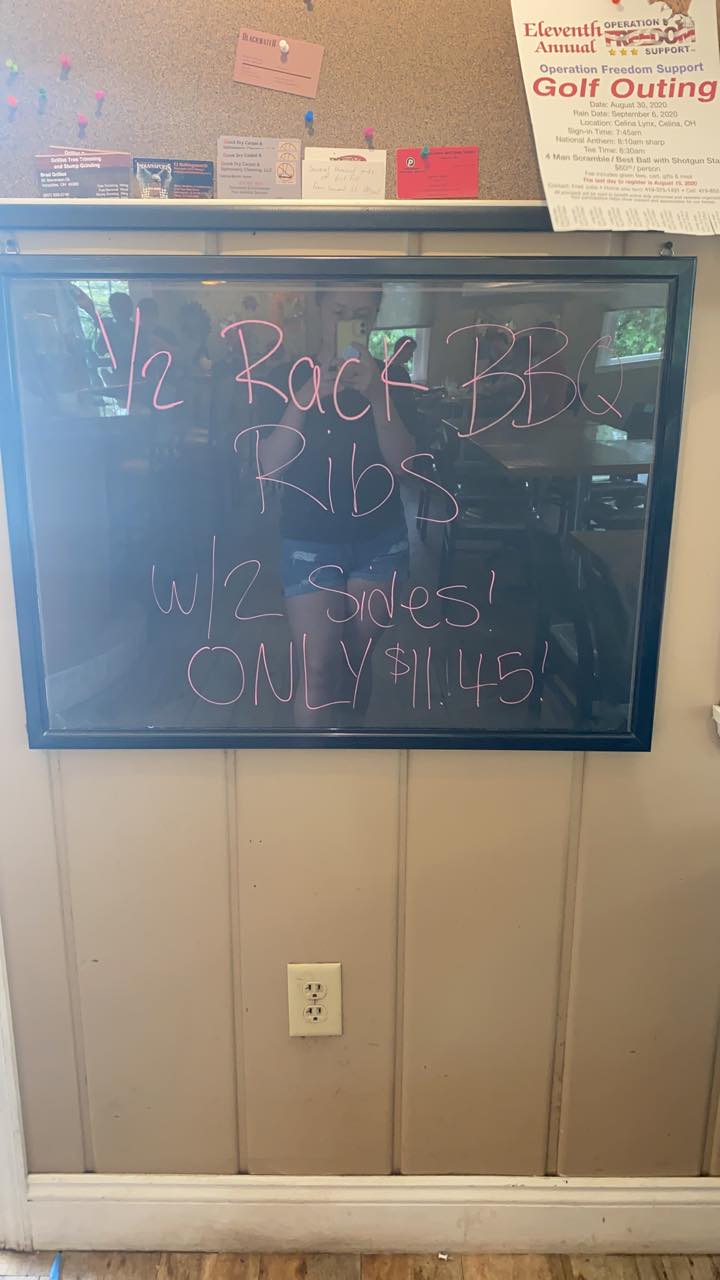 BLACKWATER
Eleventh
Annual
OPERATION
FREEDOM
SUPPORT
Operation Freedom Support
Golf Outing
Date: August 30, 2020
Rain Date: September 6, 2020
Location: Celina Lynx, Celina, OH
Sign-in Time: 7:45am
National Anthem: 8:10am sharp
Tee Time: 8:30am
4 Man Scramble / Best Ball with Shotgun Sta
/ person
Fee includes green fees, cart, gifts & meal
The last day to register is August 15, 2020
Tree Trimming
and Stump Grinding
INDIANAPOLIS
Quick Dry Carpet &
Quick Dry Carpet &
Upholstery Cleaning, LLC
1/2 Rack BBQ
Ribs
W/2 Sides!
ONLY $11.45!